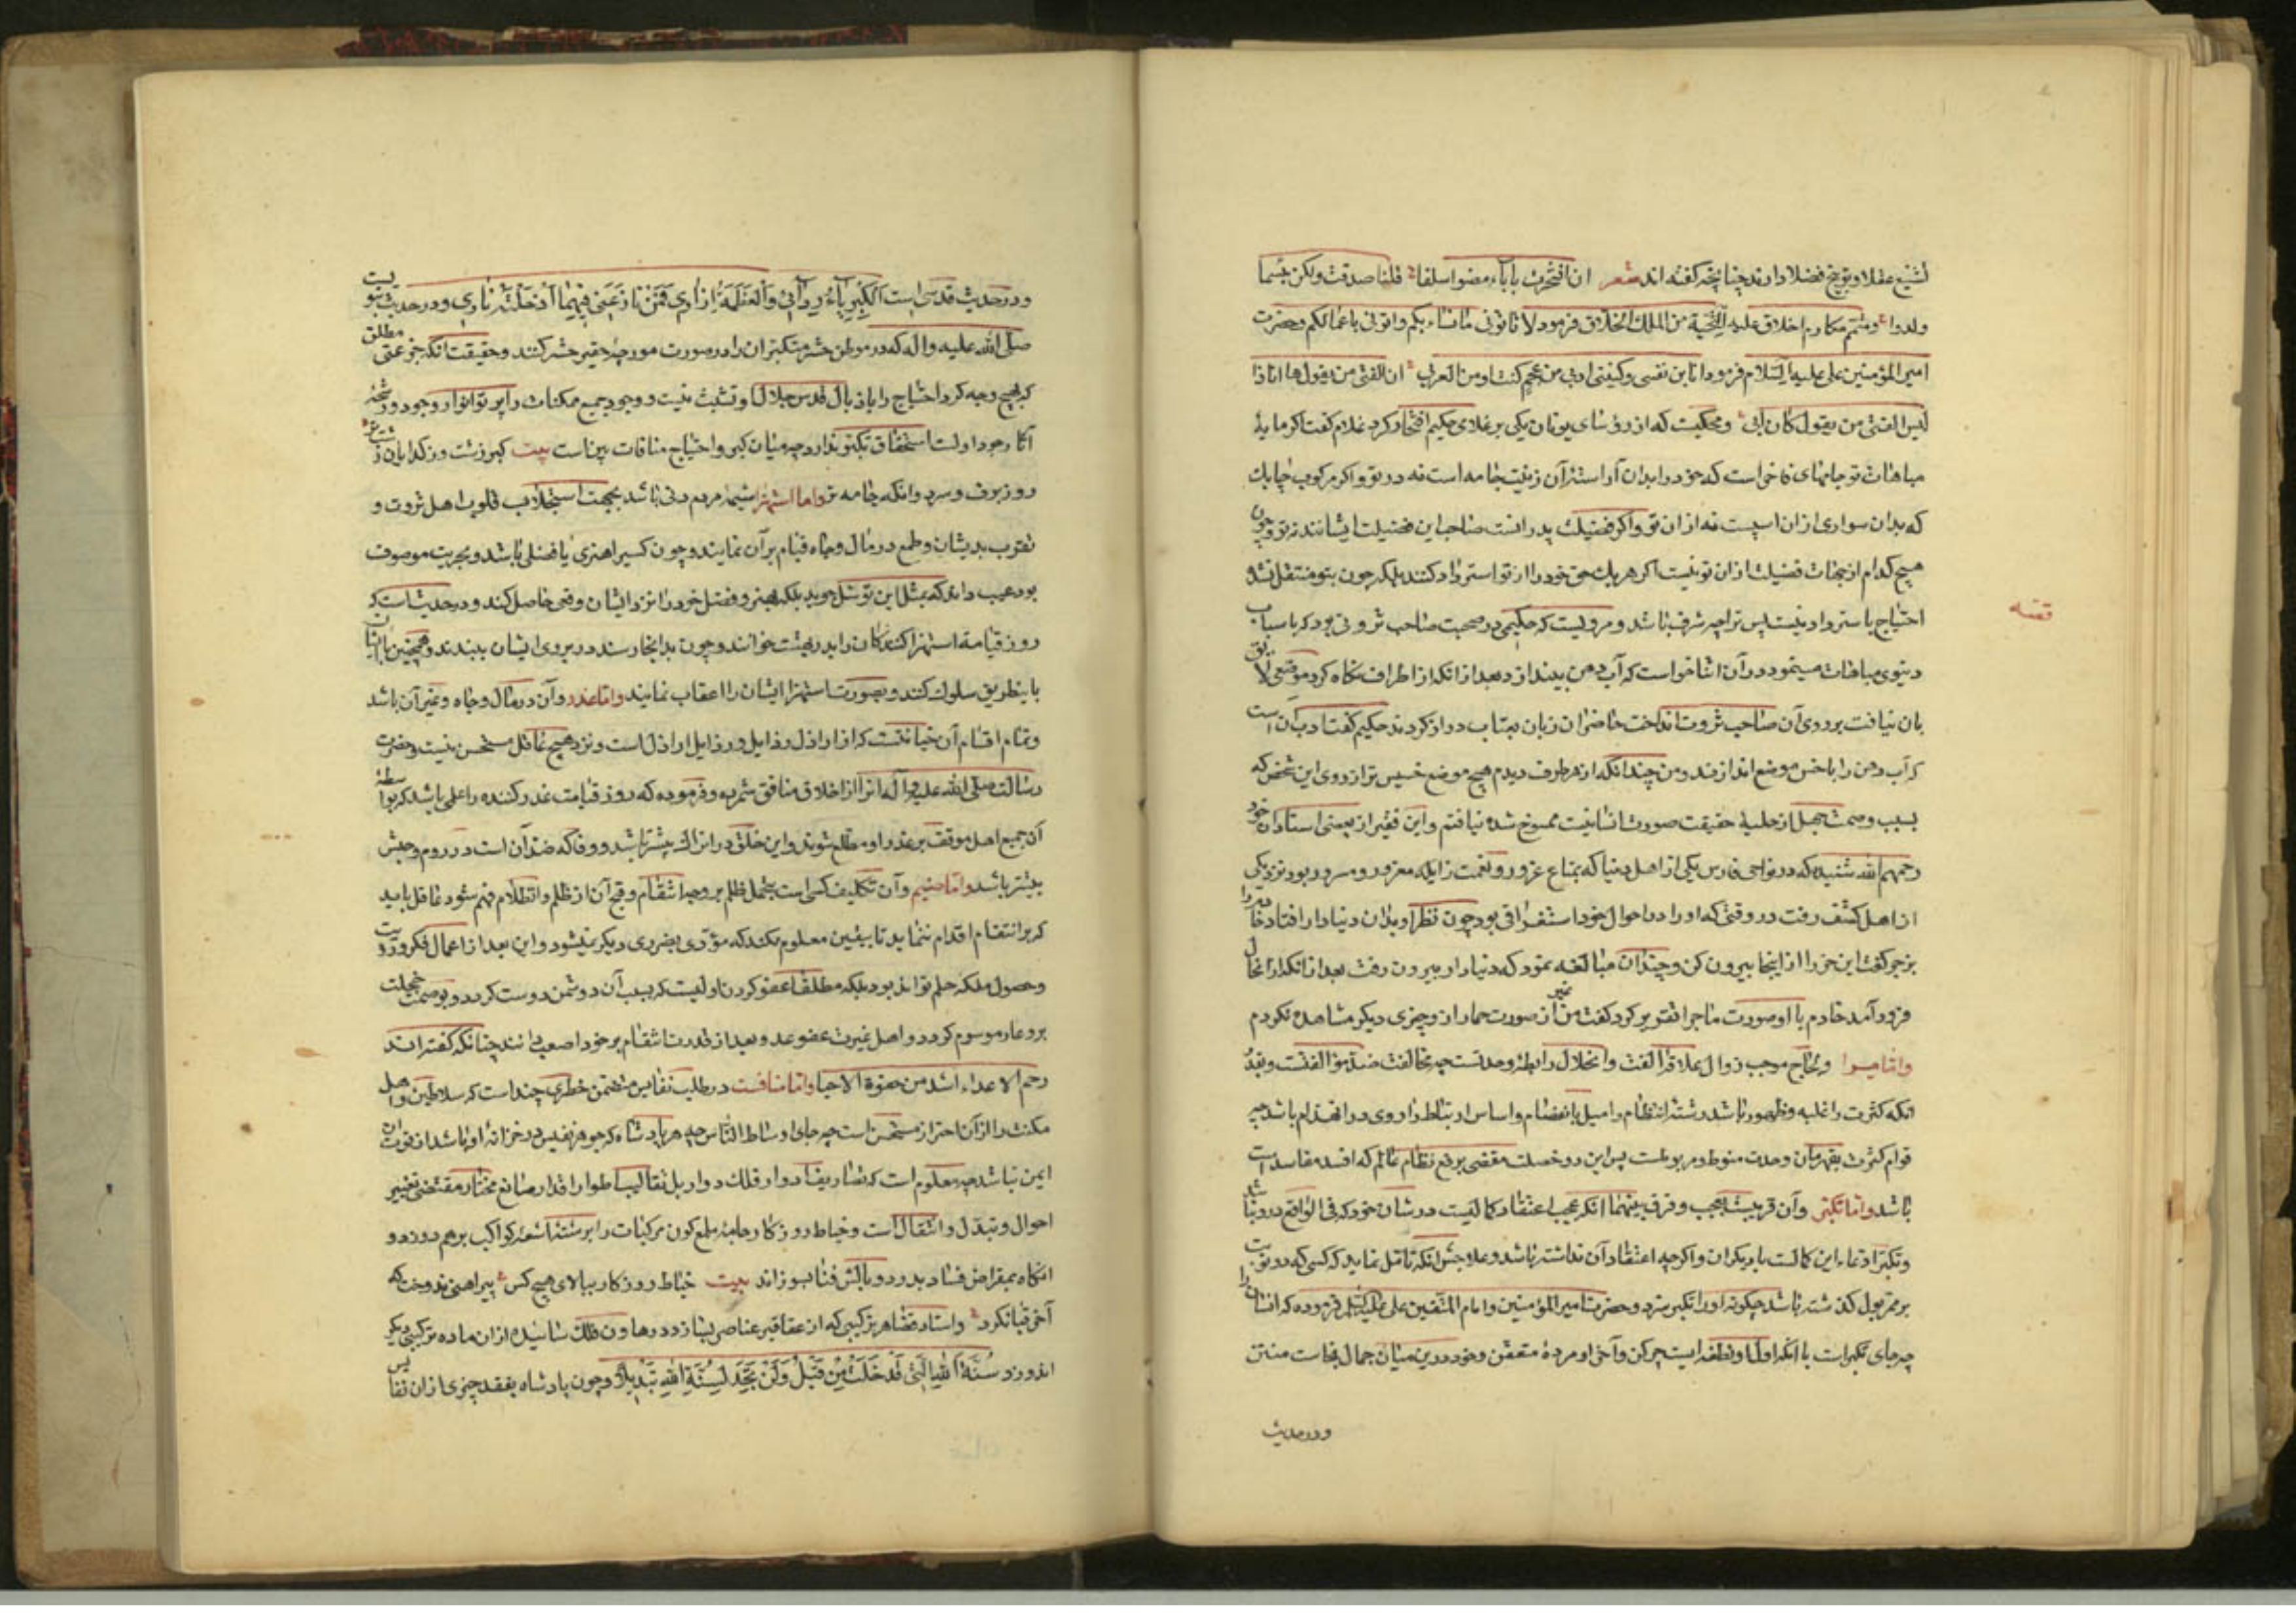 تشنیع عقلا و توبیخ فضلا دارند چنانچه گفته اند شعر ان افتخرت بآباء مضوا سلفا قلنا صدقت ولکن بئسما
ولدوا و متمم مکارم اخلاق علیه التحیة من الملک الخلاق فرمود لا تاتونی بانسابکم واتونی باعمالکم و حضرت
امیر المؤمنین علی علیه السلام فرمود انا ابن نفسی وکنیتی ادبی من عجم کنت او من العرب ان الفتی من یقول ها انا ذا
لیس الفتی من یقول کان ابی و محکیست که از رؤسای یونان یکی بر غلامی حکیم افتخار کرد غلام گفت اگر مایهٔ
مباهات تو جامهای فاخر است که خود را بدان آراستهٔ آن زینت جامه است نه در تو و اگر مرکوب چابک
که بدان سواری از آن اسپست نه از آن تو و اگر فضیلت پدرانست صاحب این فضیلت ایشانند نه تو و چون
هیچ کدام از جهات فضیلت از آن تو نیست اگر هر یک حق خود را از تو استرداد کنند بلکه چون بتو منتقل نشد
احتیاج باسترداد نیست پس ترا چه شرف باشد و مرویست که حکیمی در صحبت صاحب ثروتی بود که باسباب
دنیوی مباهات مینمود در آن اثنا خواست که آب دهن بیندازد بعد از آنکه از اطراف نگاه کرد موضعی لایق
بان نیافت بر روی آن صاحب ثروت انداخت حاضران زبان بعتاب دراز کردند حکیم گفت ادب آن است
که آب دهن را باخس موضع اندازند و من چندانکه از هر طرف دیدم هیچ موضع خسیس تر از روی این شخص که
بسبب وصمت جهل از حلیهٔ حقیقت صورت انسانیت ممسوخ شده نیافتم و این فقیر از بعضی استادان خود
رحمهم الله شنیده که در نواحی فارس یکی از اهل دنیا که بمتاع غرور و نعمت زایله مغرور و مسرور بود نزدیکی
از اهل کشف رفت در وقتی که او را در احوال خود استغراقی بود چون نظر او بدان دنیادار افتاد خادم را
بزجر گفت این خر را از اینجا بیرون کن و چندان مبالغه نمود که دنیادار بیرون رفت بعد از آنکه از آنحال
فرود آمد خادم با او صورت ماجرا تقریر کرد گفت من غیر از صورت حمار ازو چیزی دیگر مشاهده نکردم
واما مرا و لجاج موجب زوال علاقهٔ الفت و انحلال رابطهٔ وحدتست چه مخالفت ضد مؤالفتست و بعد
آنکه کثرت را غلبه و ظهور باشد رشتهٔ انتظام را میل بانفصام و اساس ارتباط را روی در انهدام باشد چه
قوام کثرت بقهرمان وحدت منوط و مربوطست پس این دو خصلت مقتضی رفع نظام عالم که افسد مفاسد است
باشد واما تکبر و آن قریبست بعجب و فرق بینهما آنکه عجب اعتقاد کمالیست در شأن خود که فی الواقع در و نباشد
و تکبر ادعاء این کمالست با دیگران و اگر چه اعتقاد آن نداشته باشد و علاجش آنکه تامل نماید که کسی که دو نوبت
بر ممر بول گذشته باشد چگونه او را تکبر سزد و حضرت امیر المؤمنین و امام المتقین علی علیه السلام فرموده که انسان را
چه جای تکبر است با آنکه اولش نطفه ایست چرکن و آخر او مردهٔ متعفن و خود درین میان حمال نجاست منتن
و در حدیث
قصه
و در حدیث قدسی است الکبریاء ردائی والعظمة ازاری فمن نازعنی فیهما ادخلته ناری و در حدیث نبویست
صلی الله علیه واله که در موطن حشر متکبران را در صورت مورچه حقیر حشر کنند و حقیقت آنکه جز غنی مطلق
که هیچ وجه گرد احتیاج را باذیال قدس جلال او تشبث نیست و وجود جمیع ممکنات را پرتو انوار وجود و رشحهٔ
آثار جود اوست استحقاق تکبر ندارد چه میان کبر و احتیاج منافات بین است بیت کبر زشت و ز گدایان زشت تر
روز برف و سرد وانگه جامه تر واما استهزا شیمهٔ مردم دنی باشد بجهت استجلاب قلوب اهل ثروت و
تقرب بدیشان و طمع در مال و جاه قیام بر آن نمایند و چون کسی را هنری یا فضلی باشد و بحریت موصوف
بود عیب داند که بمثل این توسل جوید بلکه بهنر و فضل خود را نزد ایشان وقعی حاصل کند و در حدیثست که
روز قیامه استهزا کنندگان را بدر بهشت خوانند و چون بدانجا رسند در بروی ایشان ببندند و همچنین با ایشان
باینطریق سلوک کنند و بصورت استهزا ایشان را عقاب نمایند واما غدر و آن در مال و جاه و غیر آن باشد
و تمام اقسام آن خیانتست که از اراذل رذایل و رذایل اراذل است و نزد هیچ عاقل مستحسن نیست و حضرت
رسالت صلی الله علیه وآله آنرا از اخلاق منافق شمرده و فرموده که روز قیامت غدر کننده را علمی باشد که بواسطهٔ
آن جمیع اهل موقف بر غدر او مطلع شوند و این خلق در اتراک بیشتر باشد و وفا که ضد آن است در روم و حبش
بیشتر باشد واما ضیم و آن تکلیف کسی است بتحمل ظلم بر وجه انتقام و قبح آن از ظلم و انظلام فهم شود عاقل باید
که بر انتقام اقدام ننماید تا بیقین معلوم نکند که مؤدی بضرری دیگر نمیشود و این بعد از اعمال فکر و رویت
و حصول ملکه حلم تواند بود بلکه مطلقا عفو کردن اولیست که بسبب آن دوشمن دوست گردد و بوصمت خجلت
برو عار موسوم گردد و اهل غیرت عفو عدو بعد از قدرت انتقام بر خود اصعب دانند چنانکه گفته اند
رحم الاعداء اشد من جفوة الاحبا واما منافست در طلب نفایس متضمن خطری چند است که سلاطین و اهل
مکنت را از آن احتراز مستحسن است چه جای اوساط الناس چه هر پادشاه که جوهر نفیس در خزانهٔ او باشد از فوت آن
ایمن نباشد چه معلوم است که تصاریف ادوار فلک دوار بل تقالیب اطوار اقدار صانع مختار مقتضی تغییر
احوال و تبدل و انتقال است و خیاط روزگار جامهٔ ملمع کون مرکبات را بر رشتهٔ اشعهٔ کواکب بر هم دوزد و
آنگاه بمقراض فساد بدرد و بآتش فنا بسوزاند بیت خیاط روزگار ببالای هیچ کس پیراهنی ندوخت که
آخر قبا نکرد و استاد قضا هر ترکیبی که از عقاقیر عناصر بسازد در هاون فلک سائیده از آن ماده ترکیبی دیگر
اندوزد سنة الله التی قد خلت من قبل ولن تجد لسنة الله تبدیلا و چون پادشاه بفقد چیزی از آن نفایس